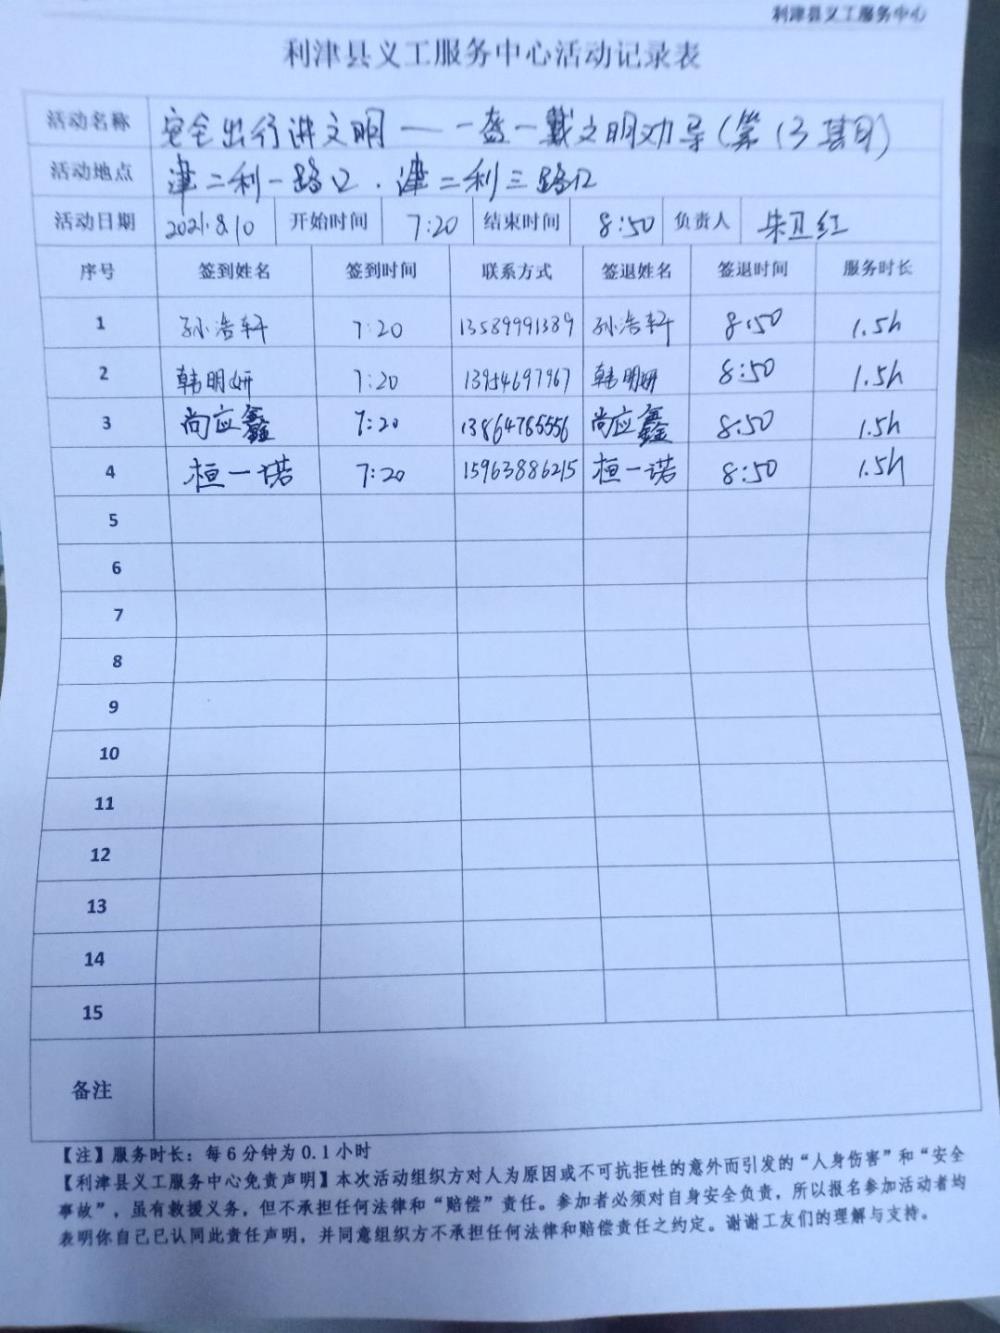 利津县义工服务中心
利津县义工服务中心活动记录表
活动名称 安全出行讲文明——一盔一戴文明劝导(第13期)
活动地点 津二利一路口、津二利三路口
活动日期 2021.8.10 开始时间 7:20 结束时间 8:50 负责人 朱卫红
序号 签到姓名 签到时间 联系方式 签退姓名 签退时间 服务时长
1 孙浩轩 7:20 13589991389 孙浩轩 8:50 1.5h
2 韩明妍 7:20 13954697967 韩明妍 8:50 1.5h
3 尚应鑫 7:20 13864785556 尚应鑫 8:50 1.5h
4 桓一诺 7:20 15963886215 桓一诺 8:50 1.5h
5
6
7
8
9
10
11
12
13
14
15
备注
【注】服务时长：每6分钟为0.1小时
【利津县义工服务中心免责声明】本次活动组织方对人为原因或不可抗拒性的意外而引发的“人身伤害”和“安全
事故”，虽有救援义务，但不承担任何法律和“赔偿”责任。参加者必须对自身安全负责，所以报名参加活动者均
表明你自己已认同此责任声明，并同意组织方不承担任何法律和赔偿责任之约定。谢谢工友们的理解与支持。